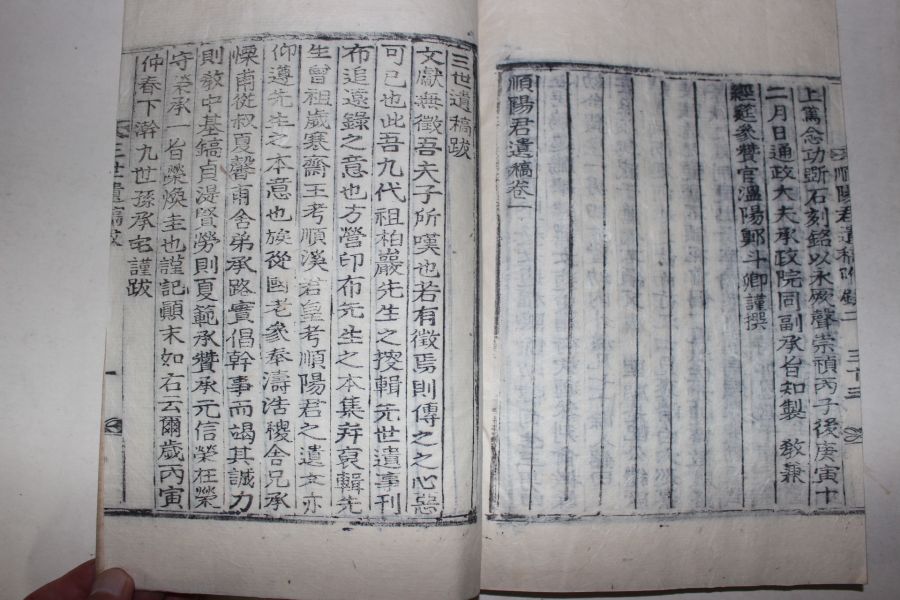 上萬念功斲石刻銘以永厥聲崇禎丙子後庚寅十
二月日通政大夫承政院同副承旨知製 敎兼
經筵參贊官溫陽鄭斗卿謹撰
順陽君遺稿卷一
順陽君遺稿附錄二
三世遺稿跋
文獻無徵吾夫子所嘆也若有徵焉則傳之之心惡
可已也此吾九代祖柏巖先生之搜輯先世遺事刊
布追遠錄之意也方營印布先生之本集弁裒輯先
生曾祖歲寒齋王考順漢君皇考順陽君之遺文亦
仰遵先生之本意也族從國老參奉濤浩稷舍兄承
慄甫從叔夏聲甫舍弟承路實倡幹事而竭其誠力
則敎中基鎬自湜賢勞則夏範承贊承元信榮在榮
守榮承一省榮煥圭也謹記顚末如右云爾歲丙寅
仲春下澣九世孫承宅謹跋
三世遺稿跋
一